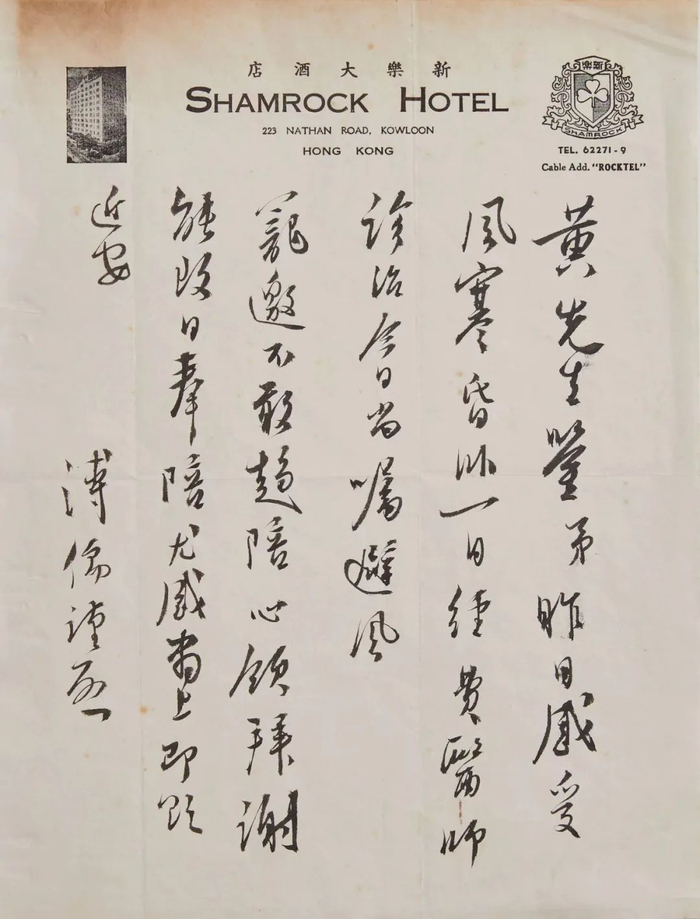 店酒大樂新
SHAMROCK HOTEL
223 NATHAN ROAD, KOWLOON
HONG KONG
樂新
SHAMROCK
TEL. 62271-9
Cable Add. "ROCKTEL"
黃先生鑒弟昨日感受
風寒昏臥一日經費醫師
診治今日尚囑避風
寵邀不敢趨陪心領拜謝
能改日奉陪尤感耑上即頌
近安
溥儒謹啟